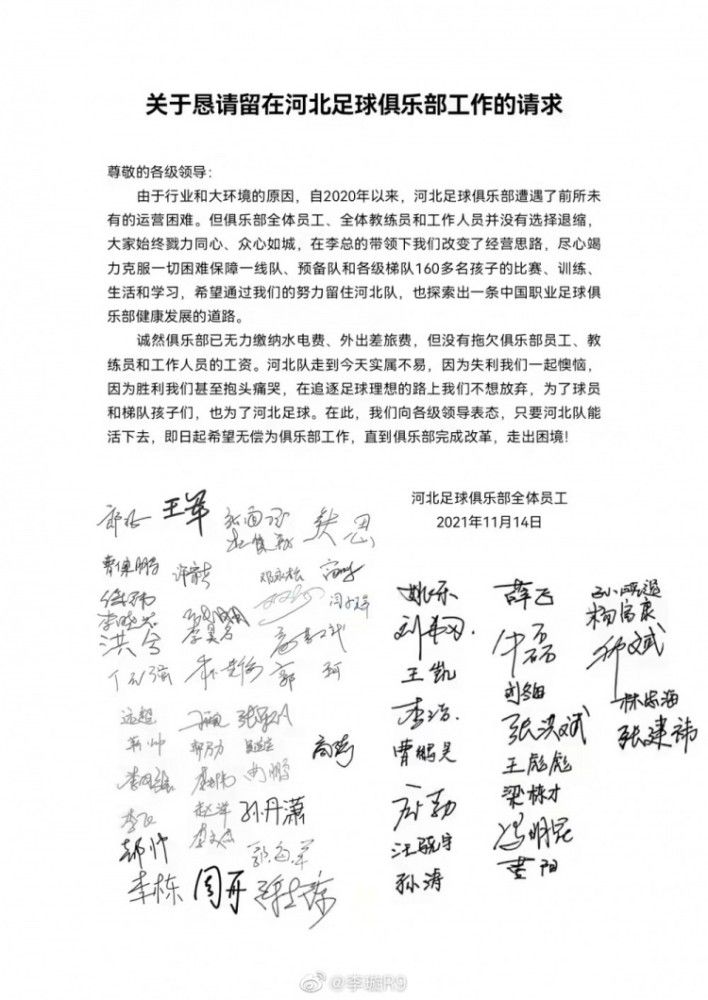 关于恳请留在河北足球俱乐部工作的请求
尊敬的各级领导：
由于行业和大环境的原因，自2020年以来，河北足球俱乐部遭遇了前所未
有的运营困难。但俱乐部全体员工、全体教练员和工作人员并没有选择退缩，
大家始终戮力同心、众心如城，在李总的带领下我们改变了经营思路，尽心竭
力克服一切困难保障一线队、预备队和各级梯队160多名孩子的比赛、训练、
生活和学习，希望通过我们的努力留住河北队，也探索出一条中国职业足球俱
乐部健康发展的道路。
诚然俱乐部已无力缴纳水电费、外出差旅费，但没有拖欠俱乐部员工、教
练员和工作人员的工资。河北队走到今天实属不易，因为失利我们一起懊恼，
因为胜利我们甚至抱头痛哭，在追逐足球理想的路上我们不想放弃，为了球员
和梯队孩子们，也为了河北足球。在此，我们向各级领导表态，只要河北队能
活下去，即日起希望无偿为俱乐部工作，直到俱乐部完成改革，走出困境!
河北足球俱乐部全体员工
2021年11月14日
王军
曹保鹏
洪兮
郭 珂
远超
孙丹潇
郭海军
李栋 周冉
姚乐
王凯
李浩
曹鹏昊
汪晓宇
孙涛
薛飞
牛磊
张洪斌
王彪彪
梁栋才
冯明昆
黄阳
杨富康
林忠海
张建祎
@李璇R9